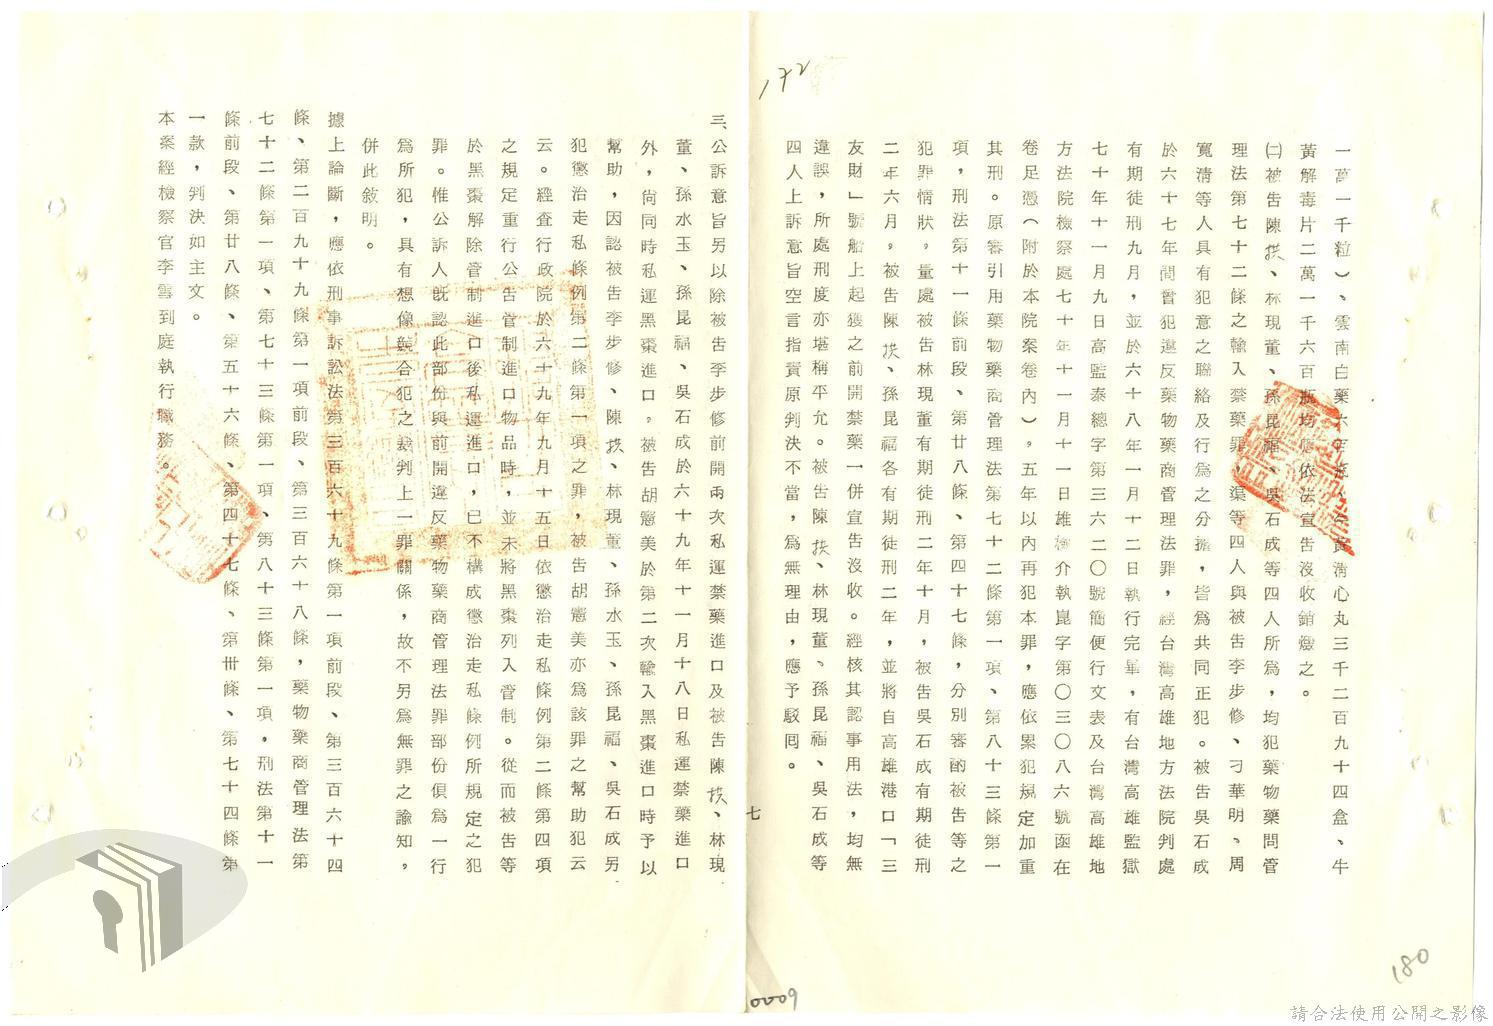 172
一萬一千粒）、雲南白藥六百瓶、牛黃清心丸三千二百九十四盒、牛
黃解毒片二萬一千六百瓶均應依法宣告沒收銷燬之。
㈡被告陳、林現董、孫昆福、吳石成等四人所為，均犯藥物藥商管
理法第七十二條之輸入禁藥罪，渠等四人與被告李步修、刁華明、周
寬清等人具有犯意之聯絡及行為之分擔，皆為共同正犯。被告吳石成
於六十七年間曾犯違反藥物藥商管理法罪，經台灣高雄地方法院判處
有期徒刑九月，並於六十八年一月十二日執行完畢，有台灣高雄監獄
七十年十一月九日高監泰總字第三六二〇號簡便行文表及台灣高雄地
方法院檢察處七十年十一月十一日雄介執崑字第〇三〇八六號函在
卷足憑（附於本院案卷內）。五年以內再犯本罪，應依累犯規定加重
其刑。原審引用藥物藥商管理法第七十二條第一項、第八十三條第一
項，刑法第十一條前段、第廿八條、第四十七條，分別審酌被告等之
犯罪情狀，量處被告林現董有期徒刑二年十月，被告吳石成有期徒刑
二年六月，被告陳、孫昆福各有期徒刑二年，並將自高雄港口「三
友財」號船上起獲之前開禁藥一併宣告沒收。經核其認事用法，均無
違誤，所處刑度亦堪稱平允。被告陳、林現董、孫昆福、吳石成等
四人上訴意旨空言指責原判決不當，為無理由，應予駁回。
七
三、公訴意旨另以除被告李步修前開兩次私運禁藥進口及被告陳、林現
董、孫水玉、孫昆福、吳石成於六十九年十一月十八日私運禁藥進口
外，尚同時私運黑棗進口。被告胡憲美於第二次輸入黑棗進口時予以
幫助，因認被告李步修、陳、林現董、孫水玉、孫昆福、吳石成另
犯懲治走私條例第二條第一項之罪，被告胡憲美亦為該罪之幫助犯云
云。經查行政院於六十九年九月十五日依懲治走私條例第二條第四項
之規定重行公告管制進口物品時，並未將黑棗列入管制。從而被告等
於黑棗解除管制進口後私運進口，已不構成懲治走私條例所規定之犯
罪。惟公訴人既認此部份與前開違反藥物藥商管理法罪部份俱為一行
為所犯，具有想像競合犯之裁判上一罪關係，故不另為無罪之諭知，
併此敘明。
據上論斷，應依刑事訴訟法第三百六十九條第一項前段、第三百六十四
條、第二百九十九條第一項前段、第三百六十八條，藥物藥商管理法第
七十二條第一項、第七十三條第一項、第八十三條第一項，刑法第十一
條前段、第廿八條、第五十六條、第四十七條、第卅條、第七十四條第
一款，判決如主文。
本案經檢察官李雪到庭執行職務。
180
0009
請合法使用公開之影像